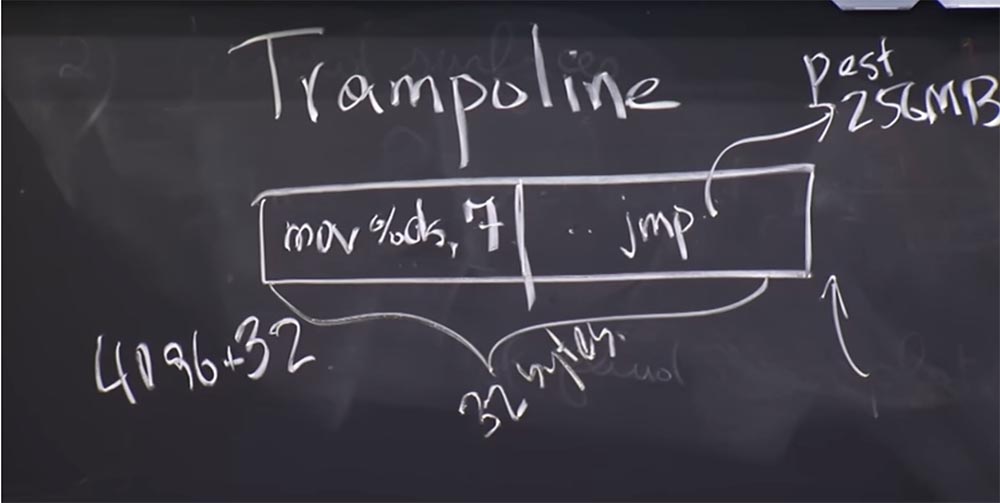 Trampoline
past
256MB
mov %ds, 7 .. jmp
4096+32
32 bytes.